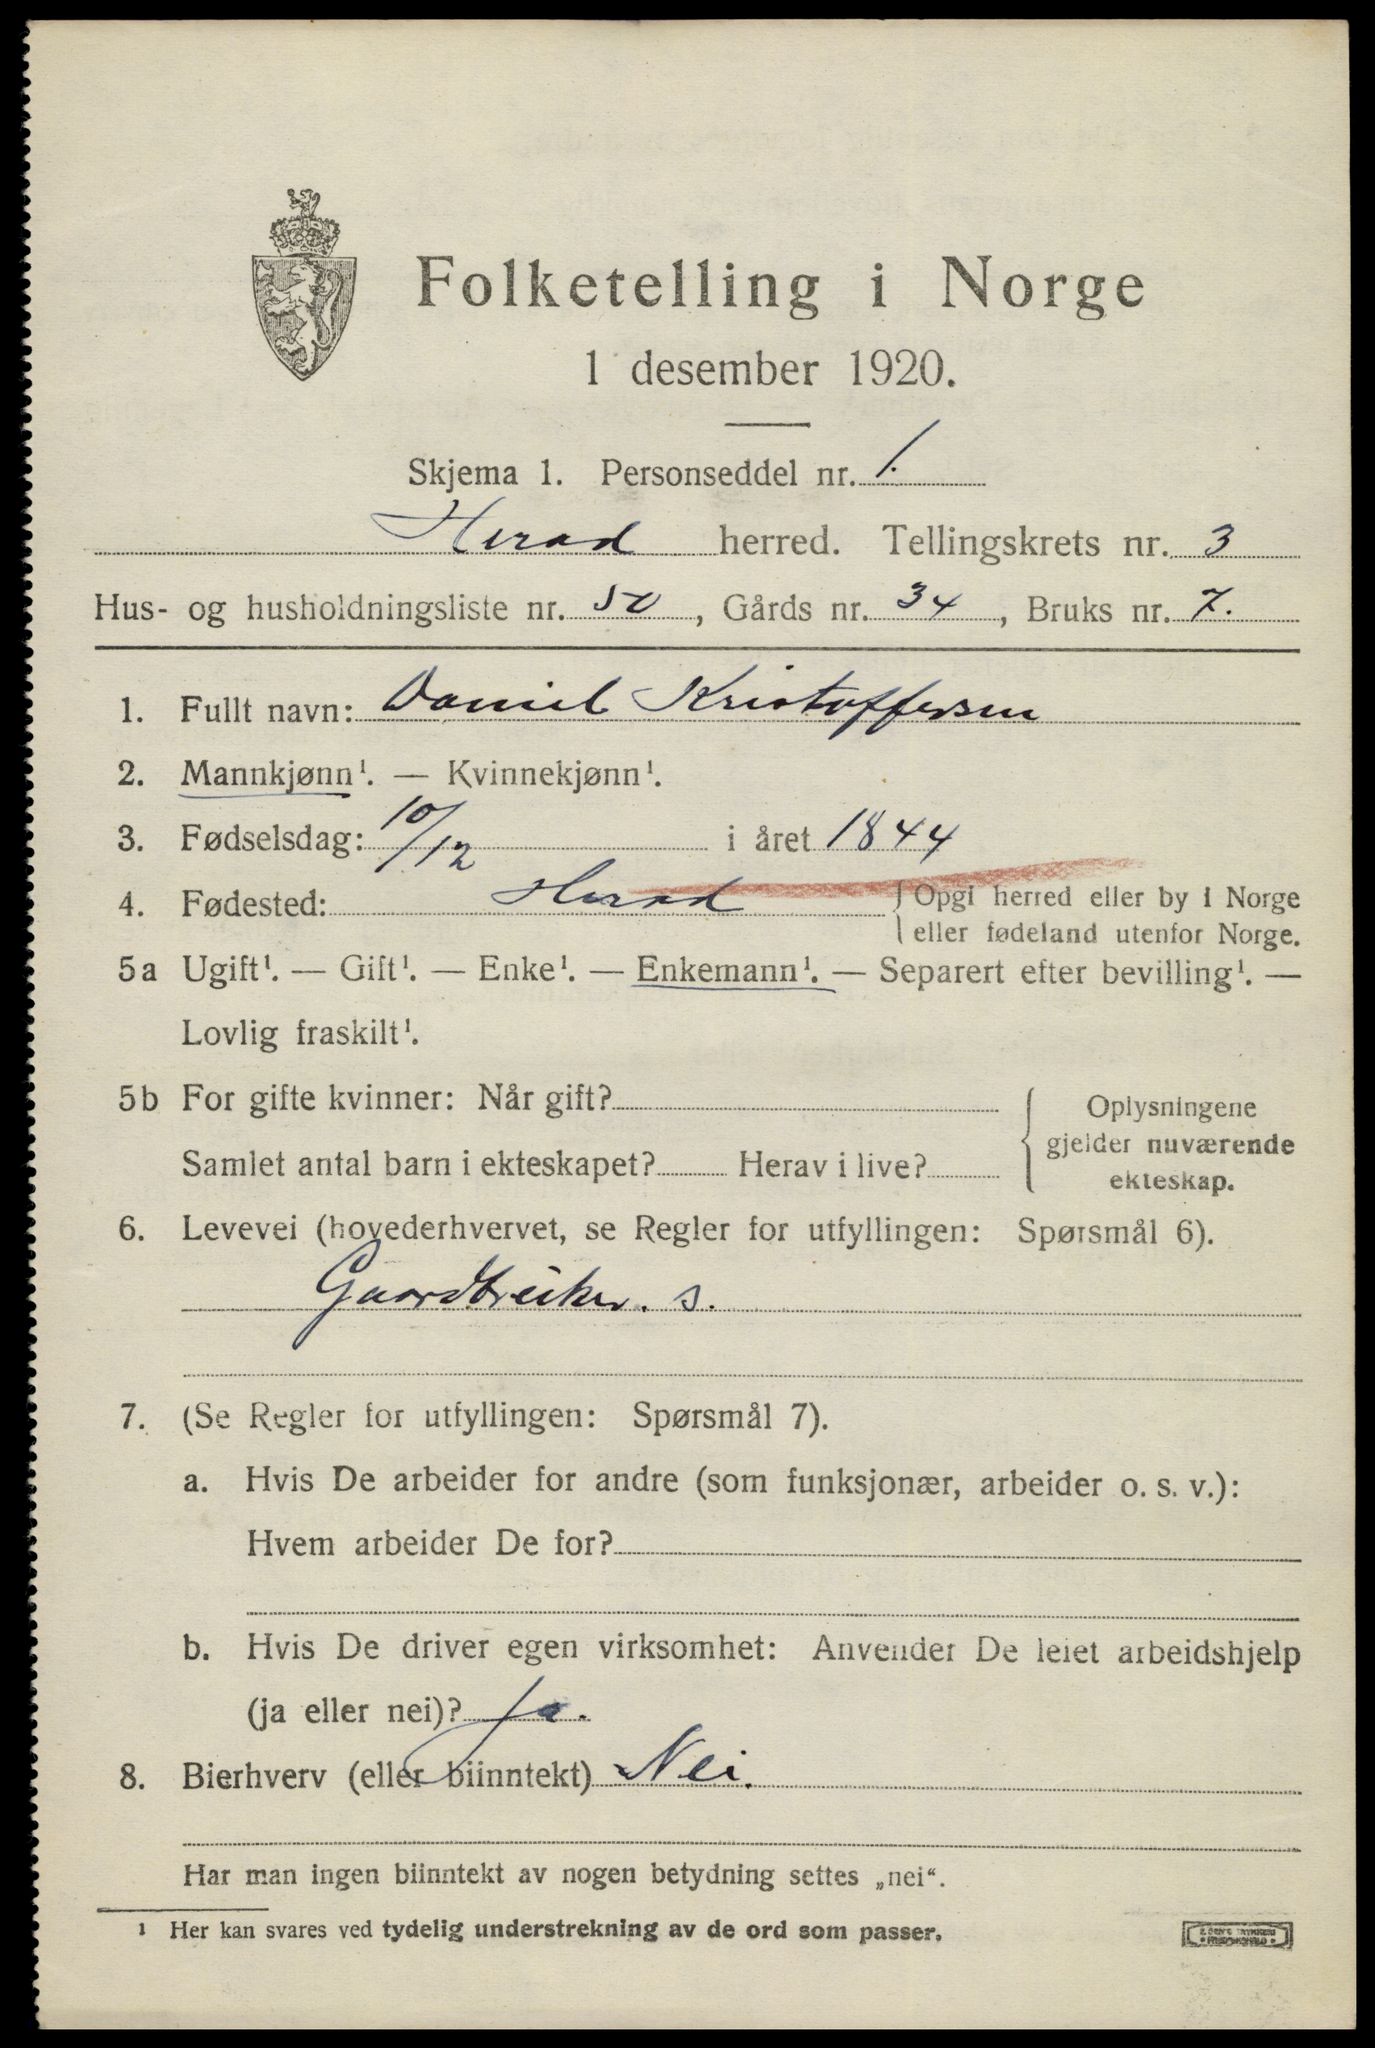 Folketelling i Norge
1 desember 1920.
Skjema 1. Personseddel nr. 1.
Herad herred. Tellingskrets nr. 3
Hus- og husholdningsliste nr. 50, Gårds nr. 34, Bruks nr. 7.
1. Fullt navn: Daniel Kristoffersen
2. Mannkjønn¹. — Kvinnekjønn¹.
3. Fødselsdag: 10/12 i året 1844
4. Fødested: Herad { Opgi herred eller by i Norge
eller fødeland utenfor Norge.
5a Ugift¹. — Gift¹. — Enke¹. — Enkemann¹. — Separert efter bevilling¹. —
Lovlig fraskilt¹.
5b For gifte kvinner: Når gift?
Samlet antal barn i ekteskapet? Herav i live?
{ Oplysningene
gjelder nuværende
ekteskap.
6. Levevei (hovederhvervet, se Regler for utfyllingen: Spørsmål 6).
Gaardbruker. s.
7. (Se Regler for utfyllingen: Spørsmål 7).
a. Hvis De arbeider for andre (som funksjonær, arbeider o. s. v.):
Hvem arbeider De for?
b. Hvis De driver egen virksomhet: Anvender De leiet arbeidshjelp
(ja eller nei)? Ja.
8. Bierhverv (eller biinntekt) Nei.
Har man ingen biinntekt av nogen betydning settes „nei“.
¹ Her kan svares ved tydelig understrekning av de ord som passer.